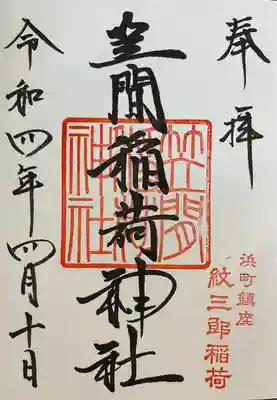 奉拝
浜町鎮座
紋三郎稲荷
笠間稲荷神社
笠間稲荷社
令和四年四月十日